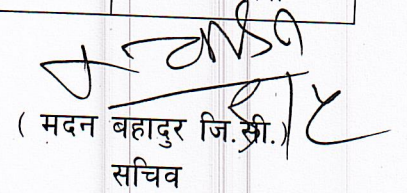 ( मदन बहादुर जि.सी.)
सचिव